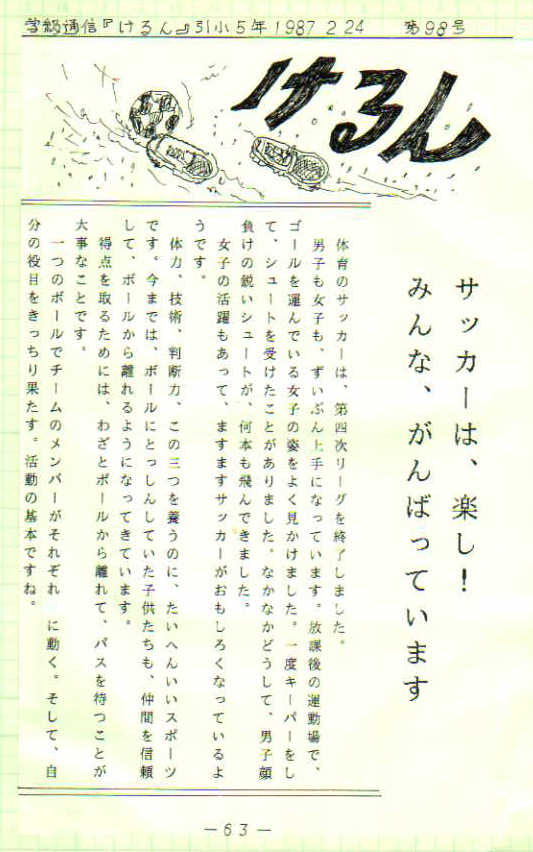 学級通信『けるん』引小5年 1987 2 24 第98号
けるん
サッカーは、楽し!
みんな、がんばっています
体育のサッカーは、第四次リーグを終了しました。
男子も女子も、ずいぶん上手になっています。放課後の運動場で、
ゴールを運んでいる女子の姿をよく見かけました。一度キーパーをし
て、シュートを受けたことがありました。なかなかどうして、男子顔
負けの鋭いシュートが、何本も飛んできました。
女子の活躍もあって、ますますサッカーがおもしろくなっているよ
うです。
体力、技術、判断力、この三つを養うのに、たいへんいいスポーツ
です。今までは、ボールにとっしんしていた子供たちも、仲間を信頼
して、ボールから離れるようになってきています。
得点を取るためには、わざとボールから離れて、パスを待つことが
大事なことです。
一つのボールでチームのメンバーがそれぞれ に動く。そして、自
分の役目をきっちり果たす。活動の基本ですね。
—63—